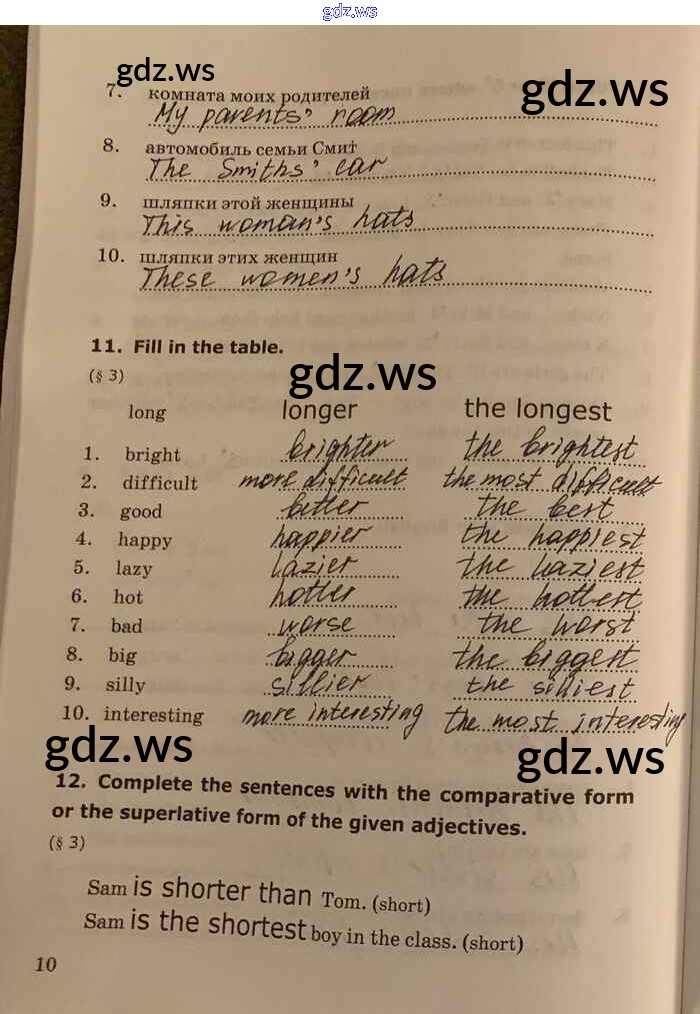 gdz.ws
gdz.ws
gdz.ws
7. комната моих родителей
My parents' room
8. автомобиль семьи Смит
The Smiths' car
9. шляпки этой женщины
This woman's hats
10. шляпки этих женщин
These women's hats
11. Fill in the table.
(§ 3)
gdz.ws
long longer the longest
1. bright brighter the brightest
2. difficult more difficult the most difficult
3. good better the best
4. happy happier the happiest
5. lazy lazier the laziest
6. hot hotter the hottest
7. bad worse the worst
8. big bigger the biggest
9. silly sillier the silliest
10. interesting more interesting the most interesting
gdz.ws
gdz.ws
12. Complete the sentences with the comparative form
or the superlative form of the given adjectives.
(§ 3)
Sam is shorter than Tom. (short)
Sam is the shortest boy in the class. (short)
10